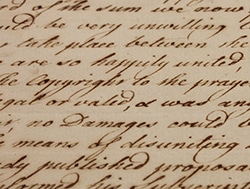 of the sum we now
be very unwilling
take place between the
are so happily united,
the Copyright to the
or valid, & was an
no Damage could b
means of disuniting
published propos